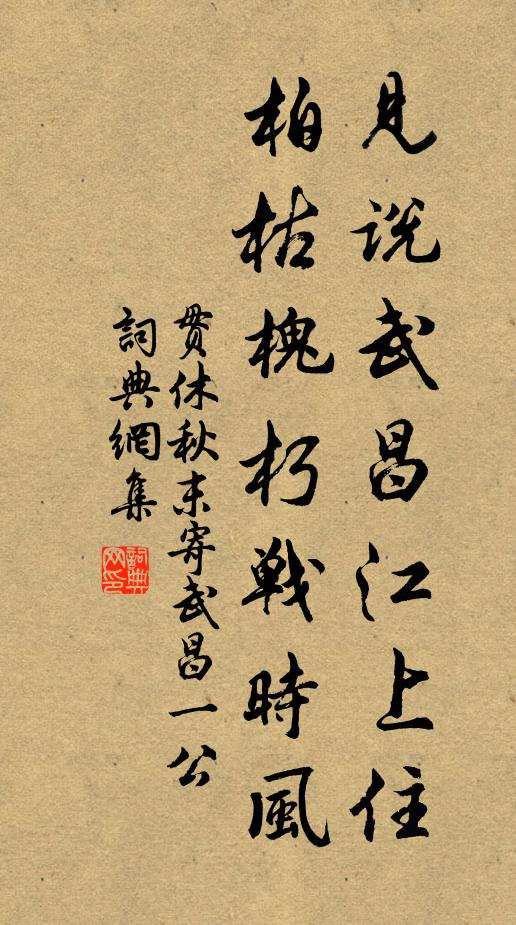 見説武昌江上住
柏枯槐朽戦時風
貫休秋末寄武昌一公
詞典網集
詞典网印